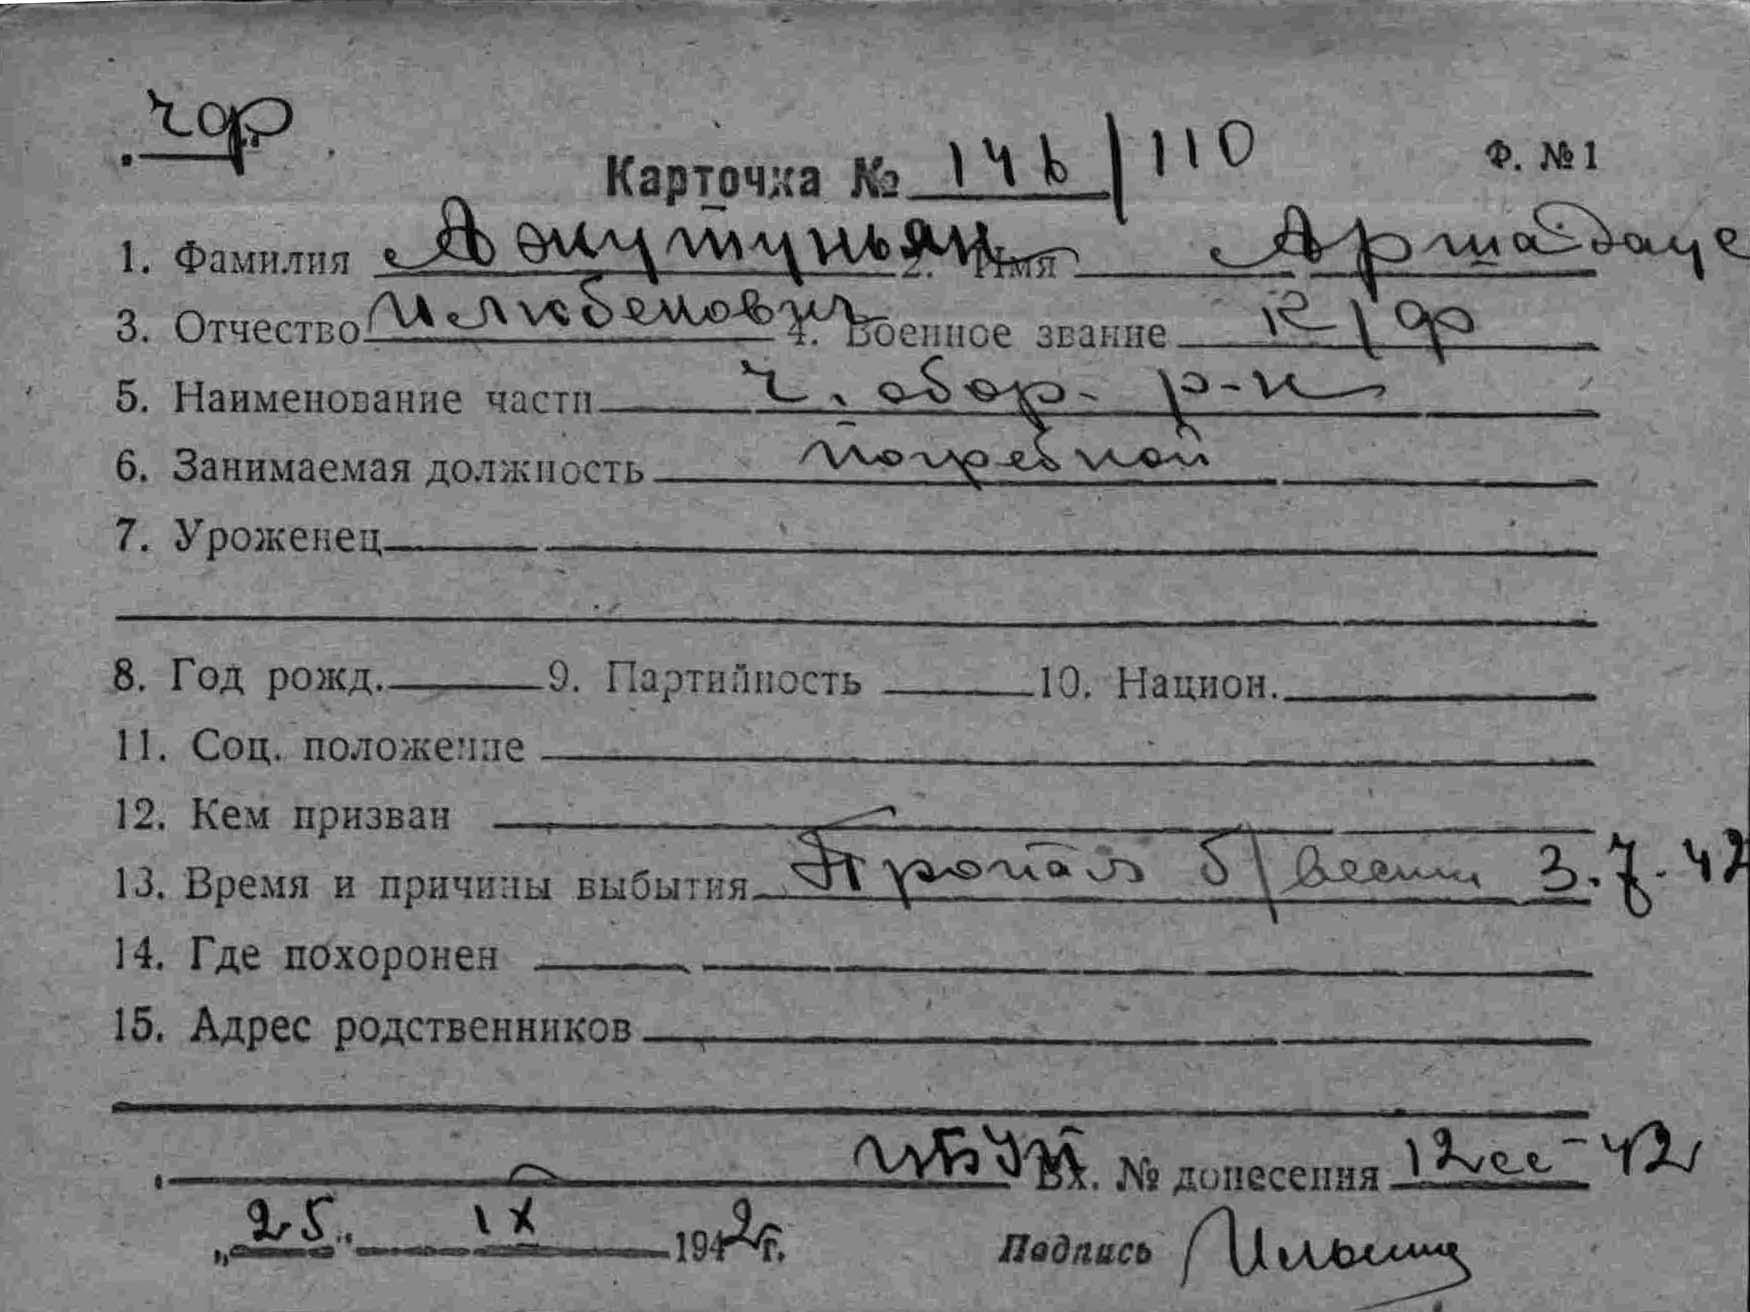 чф
Карточка № 146/110 Ф. №1
1. Фамилия Ажутуньян 2. Имя Аршадаус
3. Отчество Илюбенович 4. Военное звание к/ф
5. Наименование части ч. обор. р-н
6. Занимаемая должность погребной
7. Уроженец
8. Год рожд. 9. Партийность 10. Национ.
11. Соц. положение
12. Кем призван
13. Время и причины выбытия Пропал б/вести 3.7.42
14. Где похоронен
15. Адрес родственников
Вх. № донесения 12сс-42
„25" IX 1942г. Подпись Ильина